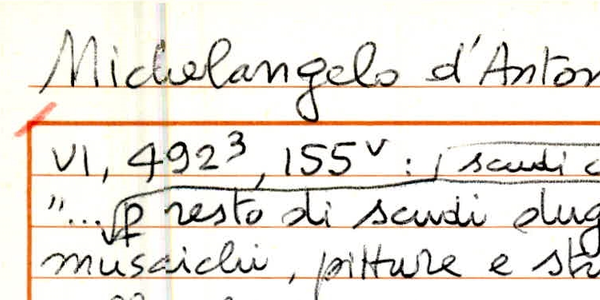 Michelangelo d'Anton
VI, 492³, 155ᵛ : scudi
"... p resto di scudi dug
musaichi, pitture e st